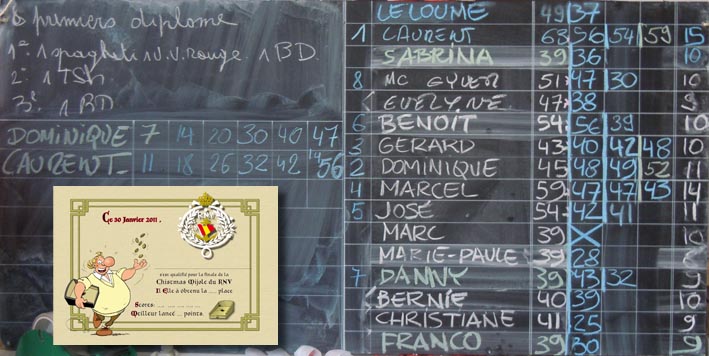 6 premiers diplome
1° 1 spaghetti 1 V.V. rouge. 1 BD.
2° 1 TSh.
3° 1 BD
DOMINIQUE 7 14 20 30 40 47
LAURENT 11 18 26 32 42 56
Ce 30 Janvier 2011.
s'est qualifié pour la finale de la
Christmas Mijole du RNV
Il Elle à obtenu la .... place
Scores: .... .... .... .... ....
Meilleur lancé ... points.
LELOUME 49 37
1 LAURENT 63 56 54 59 15
SABRINA 39 36
8 MC GYVER 51 47 30 10
EVELYNE 47 38 9
6 BENOIT 54 56 39 10
3 GERARD 43 40 42 48 10
2 DOMINIQUE 45 48 49 52 11
4 MARCEL 59 47 47 43 14
5 JOSÉ 54 42 41 11
MARC 39 X 10
MARIE-PAULE 39 28
7 DANNY 39 43 32 9
BERNIE 40 39 10
CHRISTIANE 41 25 9
FRANCO 39 30 9